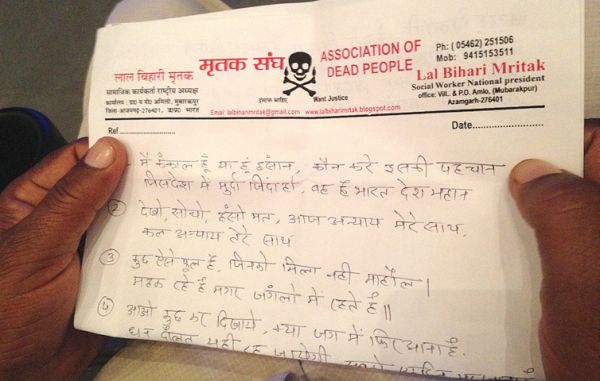 मृतक संघ
ASSOCIATION OF
DEAD PEOPLE
Ph: ( 05462) 251506
Mob: 9415153511
लाल बिहारी मृतक
सामाजिक कार्यकर्ता राष्ट्रीय अध्यक्ष
Lal Bihari Mritak
Social Worker National president
office: Vill. & P.O. Amlo, (Mubarakpur)
Azamgarh-276401
इंसाफ चाहिए
Want Justice
Email: lalbiharimritak@gmail.com www.lalbiharimrtak.blogspot.com
Ref
Date
मैं कंकाल हूँ या हूं इंसान, कौन करे इसकी पहचान
जिस देश में मुर्दा जिंदा हो, वह है भारत देश महान
② देखो, सोचो, हंसो मत, आज अन्याय मेरे साथ,
कल अन्याय तेरे साथ
③ कुछ ऐसे फूल है, जिनको मिला नही माहौल।
महक रहे है मगर जंगलो में रहते है॥
④ आओ कुछ कर दिखाये, क्या जग में फिर आना है.
दौलत यही रह जायेगी